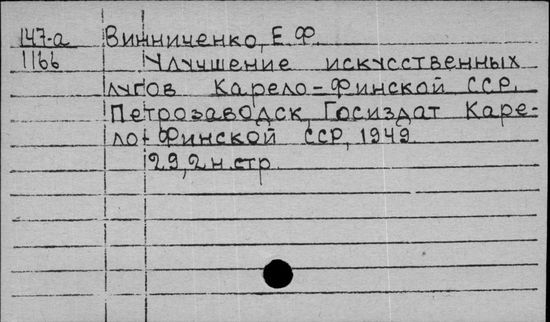 147-а Винниченко, Е.Ф.
1166 Улучшение искусственных
лугов Карело-Финской ССР.
Петрозаводск, Госиздат Каре-
ло-Финской ССР, 1949.
29, 2 н. стр.